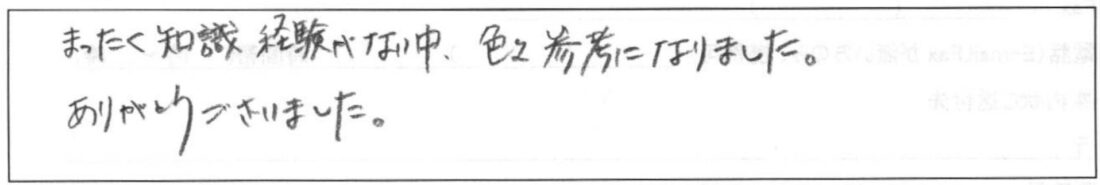 まったく知識、経験がない中、色々参考になりました。
ありがとうございました。